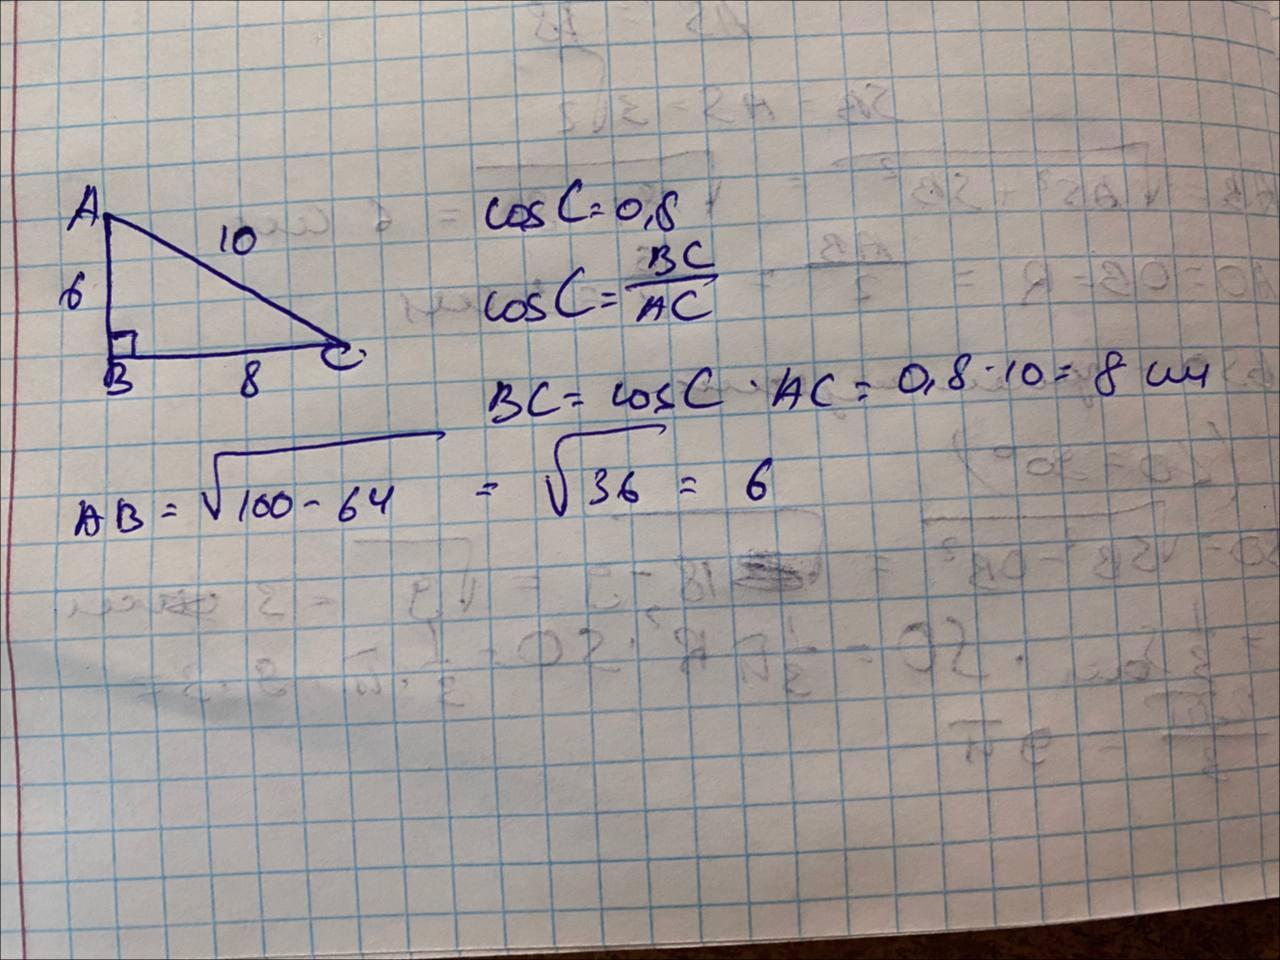 A
10
6
B
8
C
cos C = 0,8
cos C = BC / AC
BC = cos C · AC = 0,8 · 10 = 8 см
AB = √100 - 64 = √36 = 6